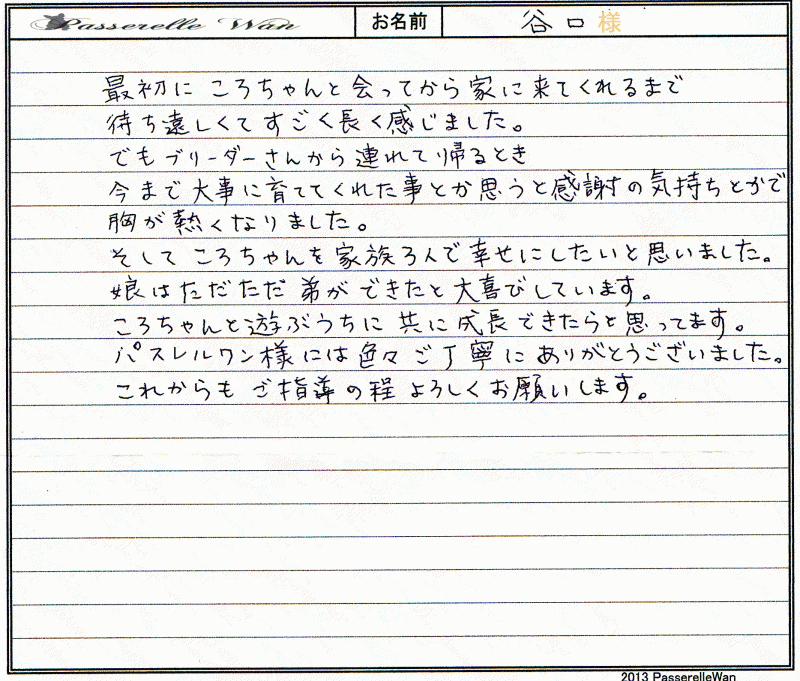 Passerelle Wan お名前 谷口 様
最初に ころちゃんと会ってから家に来てくれるまで
待ち遠しくてすごく長く感じました。
でもブリーダーさんから連れて帰るとき
今まで大事に育ててくれた事とか思うと感謝の気持ちとかで
胸が熱くなりました。
そして ころちゃんを家族3人で幸せにしたいと思いました。
娘はただただ弟ができたと大喜びしています。
ころちゃんと遊ぶうちに共に成長できたらと思ってます。
パスレルワン様には色々ご丁寧にありがとうございました。
これからもご指導の程よろしくお願いします。
2013 PasserelleWan